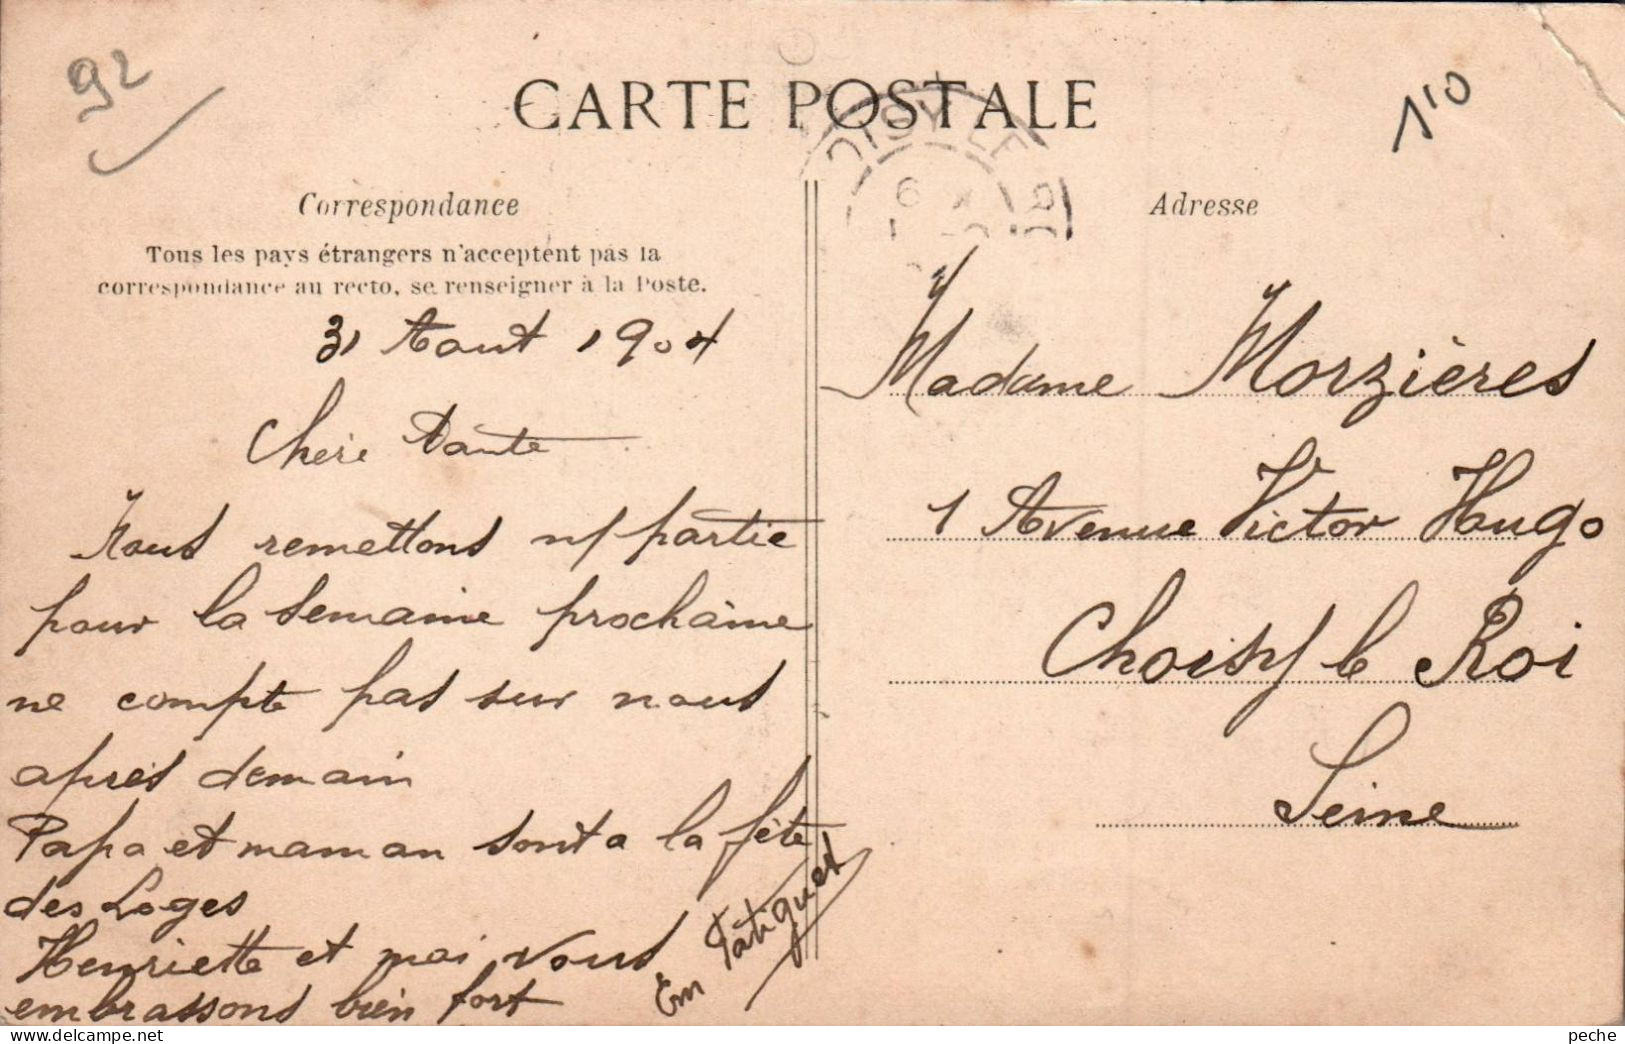 92
1'0
CARTE POSTALE
Correspondance
Tous les pays étrangers n'acceptent pas la
correspondance au recto, se renseigner à la Poste.
31 Aout 1904
Chère Tante
Nous remettons n/ partie
pour la semaine prochaine
ne compte pas sur nous
après demain
Papa et maman sont a la fête
des Loges
Henriette et moi vous
embrassons bien fort
Em Patiquet
Adresse
Madame Morzières
1 Avenue Victor Hugo
Choisy le Roi
Seine
CHOISY LE
peche